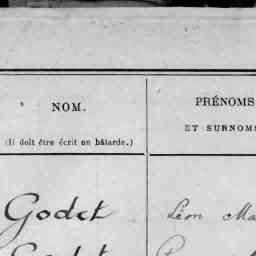 NOM.
(Il doit être écrit en bâtarde.)
PRÉNOMS
ET SURNOMS
Godet
Léon Ma
Godet